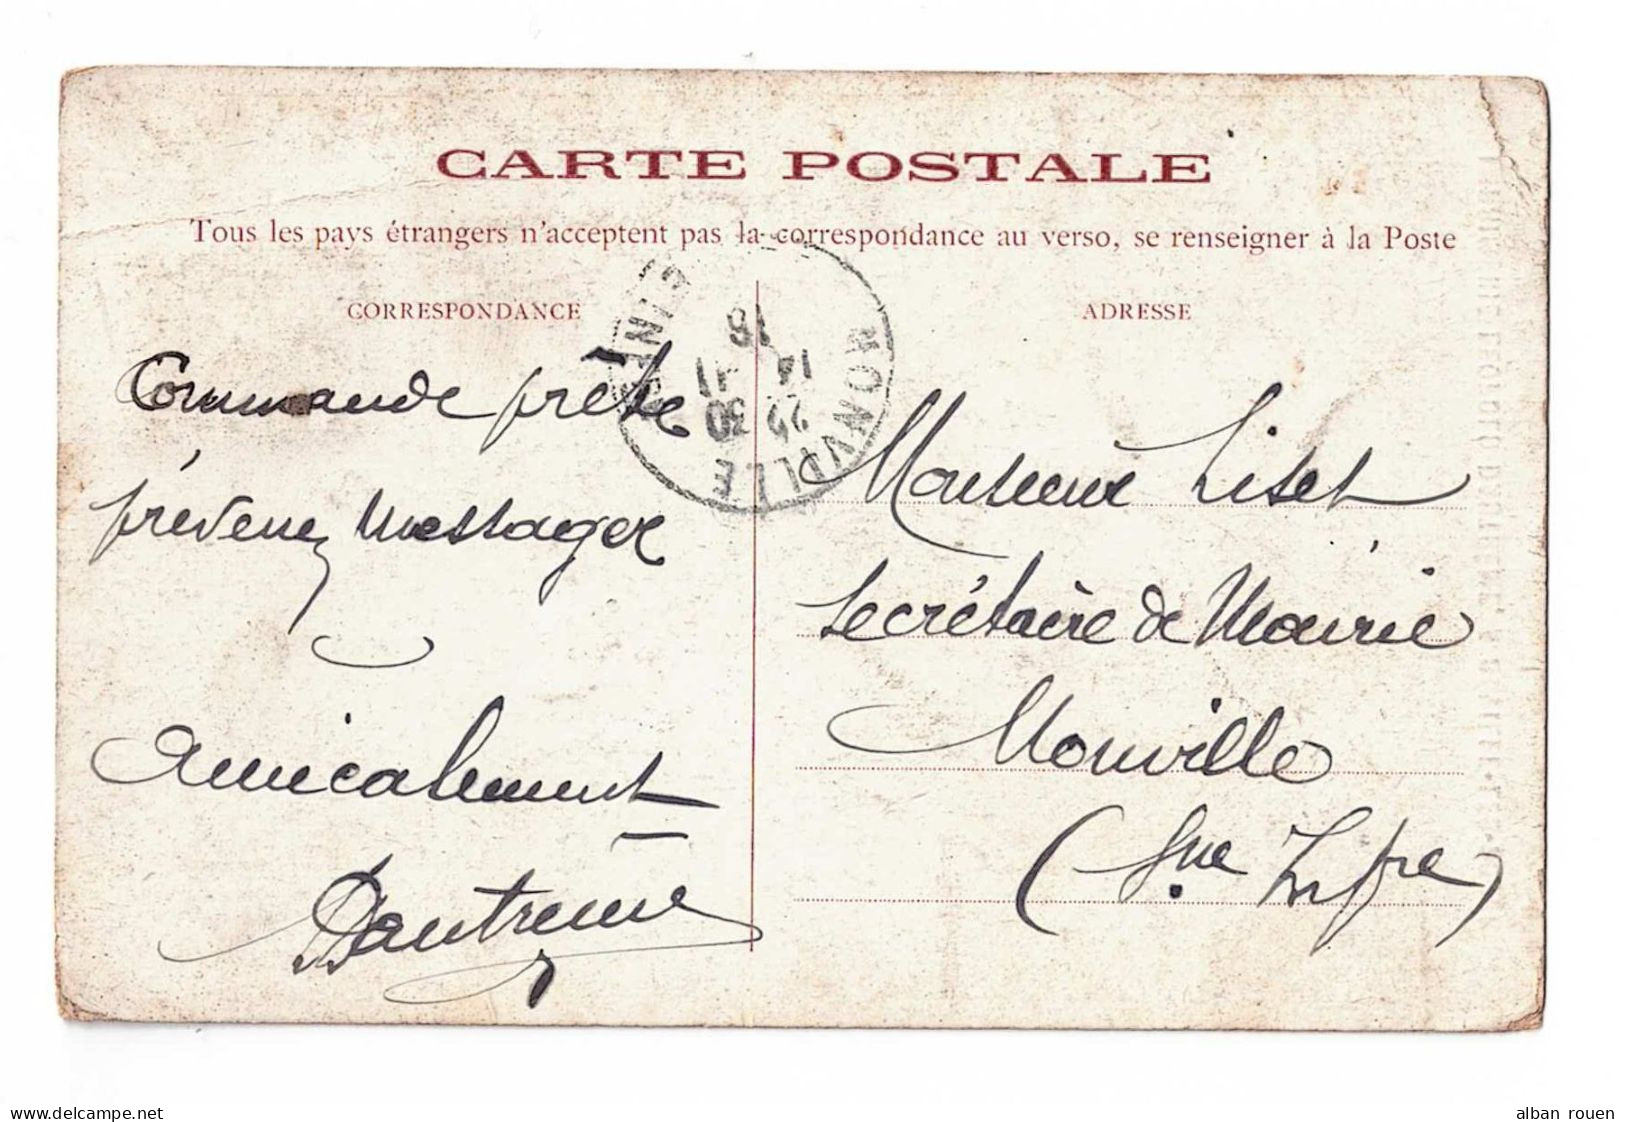 CARTE POSTALE
Tous les pays étrangers n'acceptent pas la correspondance au verso, se renseigner à la Poste
CORRESPONDANCE
ADRESSE
MONVILLE
18
14 11
30
Commande prête
prévenez Messager
Amicalement
Monsieur Liset
Secrétaire de Mairie
Monville
(Sne Infre)
www.delcampe.net
alban rouen